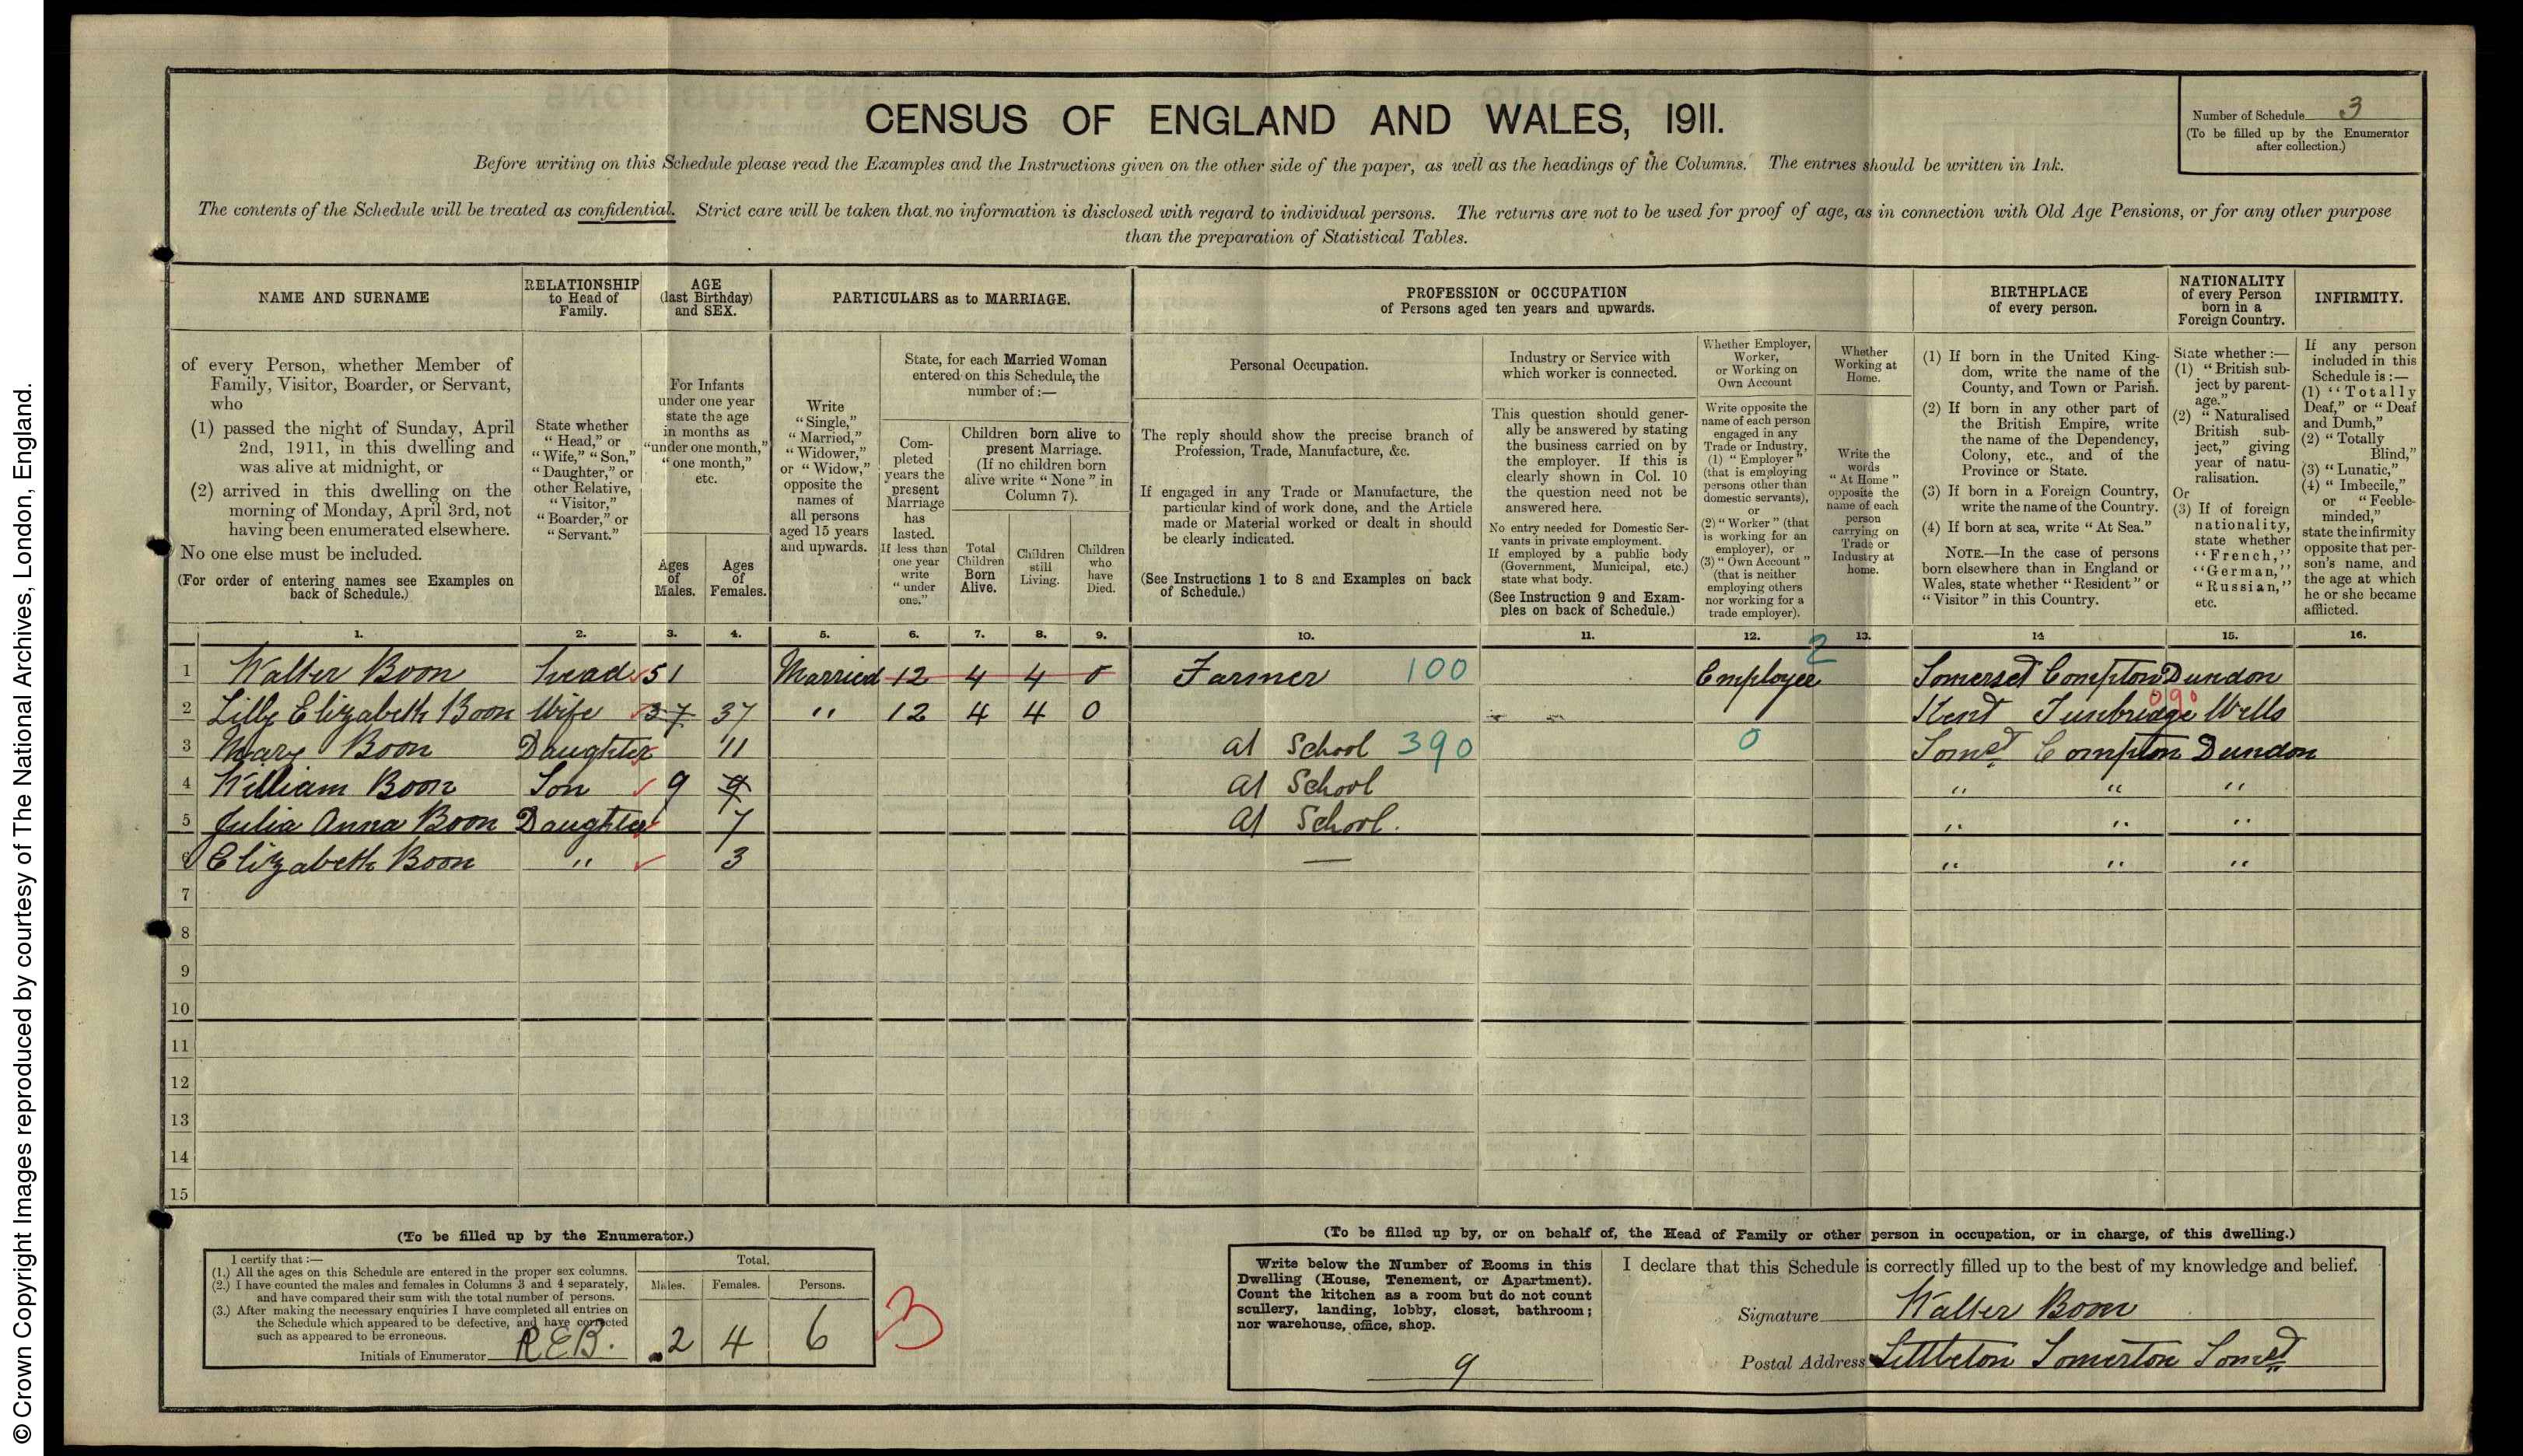 © Crown Copyright Images reproduced by courtesy of The National Archives, London, England.
CENSUS OF ENGLAND AND WALES, 1911.
Number of Schedule 3
(To be filled up by the Enumerator
after collection.)
Before writing on this Schedule please read the Examples and the Instructions given on the other side of the paper, as well as the headings of the Columns. The entries should be written in Ink.
The contents of the Schedule will be treated as confidential. Strict care will be taken that no information is disclosed with regard to individual persons. The returns are not to be used for proof of age, as in connection with Old Age Pensions, or for any other purpose
than the preparation of Statistical Tables.
NAME AND SURNAME
of every Person, whether Member of
Family, Visitor, Boarder, or Servant,
who
(1) passed the night of Sunday, April
2nd, 1911, in this dwelling and
was alive at midnight, or
(2) arrived in this dwelling on the
morning of Monday, April 3rd, not
having been enumerated elsewhere.
No one else must be included.
(For order of entering names see Examples on
back of Schedule.)
RELATIONSHIP
to Head of
Family.
State whether
"Head," or
"Wife," "Son,"
"Daughter," or
other Relative,
"Visitor,"
"Boarder," or
"Servant."
AGE
(last Birthday)
and SEX.
For Infants
under one year
state the age
in months as
"under one month,"
"one month,"
etc.
Ages
of
Males.
Ages
of
Females.
PARTICULARS as to MARRIAGE.
Write
"Single,"
"Married,"
"Widower,"
or "Widow,"
opposite the
names of
all persons
aged 15 years
and upwards.
State, for each Married Woman
entered on this Schedule, the
number of:—
Com-
pleted
years the
present
Marriage
has
lasted.
If less than
one year
write
"under
one."
Children born alive to
present Marriage.
(If no children born
alive write "None" in
Column 7).
Total
Children
Born
Alive.
Children
still
Living.
Children
who
have
Died.
PROFESSION or OCCUPATION
of Persons aged ten years and upwards.
Personal Occupation.
The reply should show the precise branch of
Profession, Trade, Manufacture, &c.
If engaged in any Trade or Manufacture, the
particular kind of work done, and the Article
made or Material worked or dealt in should
be clearly indicated.
(See Instructions 1 to 8 and Examples on back
of Schedule.)
Industry or Service with
which worker is connected.
This question should gener-
ally be answered by stating
the business carried on by
the employer. If this is
clearly shown in Col. 10
the question need not be
answered here.
No entry needed for Domestic Ser-
vants in private employment.
If employed by a public body
(Government, Municipal, etc.)
state what body.
(See Instruction 9 and Exam-
ples on back of Schedule.)
Whether Employer,
Worker,
or Working on
Own Account
Write opposite the
name of each person
engaged in any
Trade or Industry,
(1) "Employer"
(that is employing
persons other than
domestic servants),
or
(2) "Worker" (that
is working for an
employer), or
(3) "Own Account"
(that is neither
employing others
nor working for a
trade employer).
Whether
Working at
Home.
Write the
words
"At Home"
opposite the
name of each
person
carrying on
Trade or
Industry at
home.
BIRTHPLACE
of every person.
(1) If born in the United King-
dom, write the name of the
County, and Town or Parish.
(2) If born in any other part of
the British Empire, write
the name of the Dependency,
Colony, etc., and of the
Province or State.
(3) If born in a Foreign Country,
write the name of the Country.
(4) If born at sea, write "At Sea."
NOTE.—In the case of persons
born elsewhere than in England or
Wales, state whether "Resident" or
"Visitor" in this Country.
NATIONALITY
of every Person
born in a
Foreign Country.
State whether:—
(1) "British sub-
ject by parent-
age."
(2) "Naturalised
British sub-
ject," giving
year of natu-
ralisation.
Or
(3) If of foreign
nationality,
state whether
"French,"
"German,"
"Russian,"
etc.
INFIRMITY.
If any person
included in this
Schedule is:—
(1) "Totally
Deaf," or "Deaf
and Dumb,"
(2) "Totally
Blind,"
(3) "Lunatic,"
(4) "Imbecile,"
or "Feeble-
minded,"
state the infirmity
opposite that per-
son's name, and
the age at which
he or she became
afflicted.
1. 2. 3. 4. 5. 6. 7. 8. 9. 10. 11. 12. 13. 14 15. 16.
1 Walter Boon head 51 Married 12 4 4 0 Farmer 100 Employer 2 Somerset Compton Dundon
2 Lilly Elizabeth Boon Wife 37 37 " 12 4 4 0 Kent Tunbridge Wells 090
3 Mary Boon Daughter 11 at School 390 0 Somet Compton Dundon
4 William Boon Son 9 9 at School " " "
5 Julia Anna Boon Daughter 7 at School. " " "
6 Elizabeth Boon " 3 — " " "
7
8
9
10
11
12
13
14
15
(To be filled up by the Enumerator.)
I certify that:—
(1.) All the ages on this Schedule are entered in the proper sex columns.
(2.) I have counted the males and females in Columns 3 and 4 separately,
and have compared their sum with the total number of persons.
(3.) After making the necessary enquiries I have completed all entries on
the Schedule which appeared to be defective, and have corrected
such as appeared to be erroneous.
Initials of Enumerator R.E.B.
Total.
Males. Females. Persons.
2 4 6
3
(To be filled up by, or on behalf of, the Head of Family or other person in occupation, or in charge, of this dwelling.)
Write below the Number of Rooms in this
Dwelling (House, Tenement, or Apartment).
Count the kitchen as a room but do not count
scullery, landing, lobby, closet, bathroom;
nor warehouse, office, shop.
9
I declare that this Schedule is correctly filled up to the best of my knowledge and belief.
Signature Walter Boon
Postal Address Littleton Somerton Somet